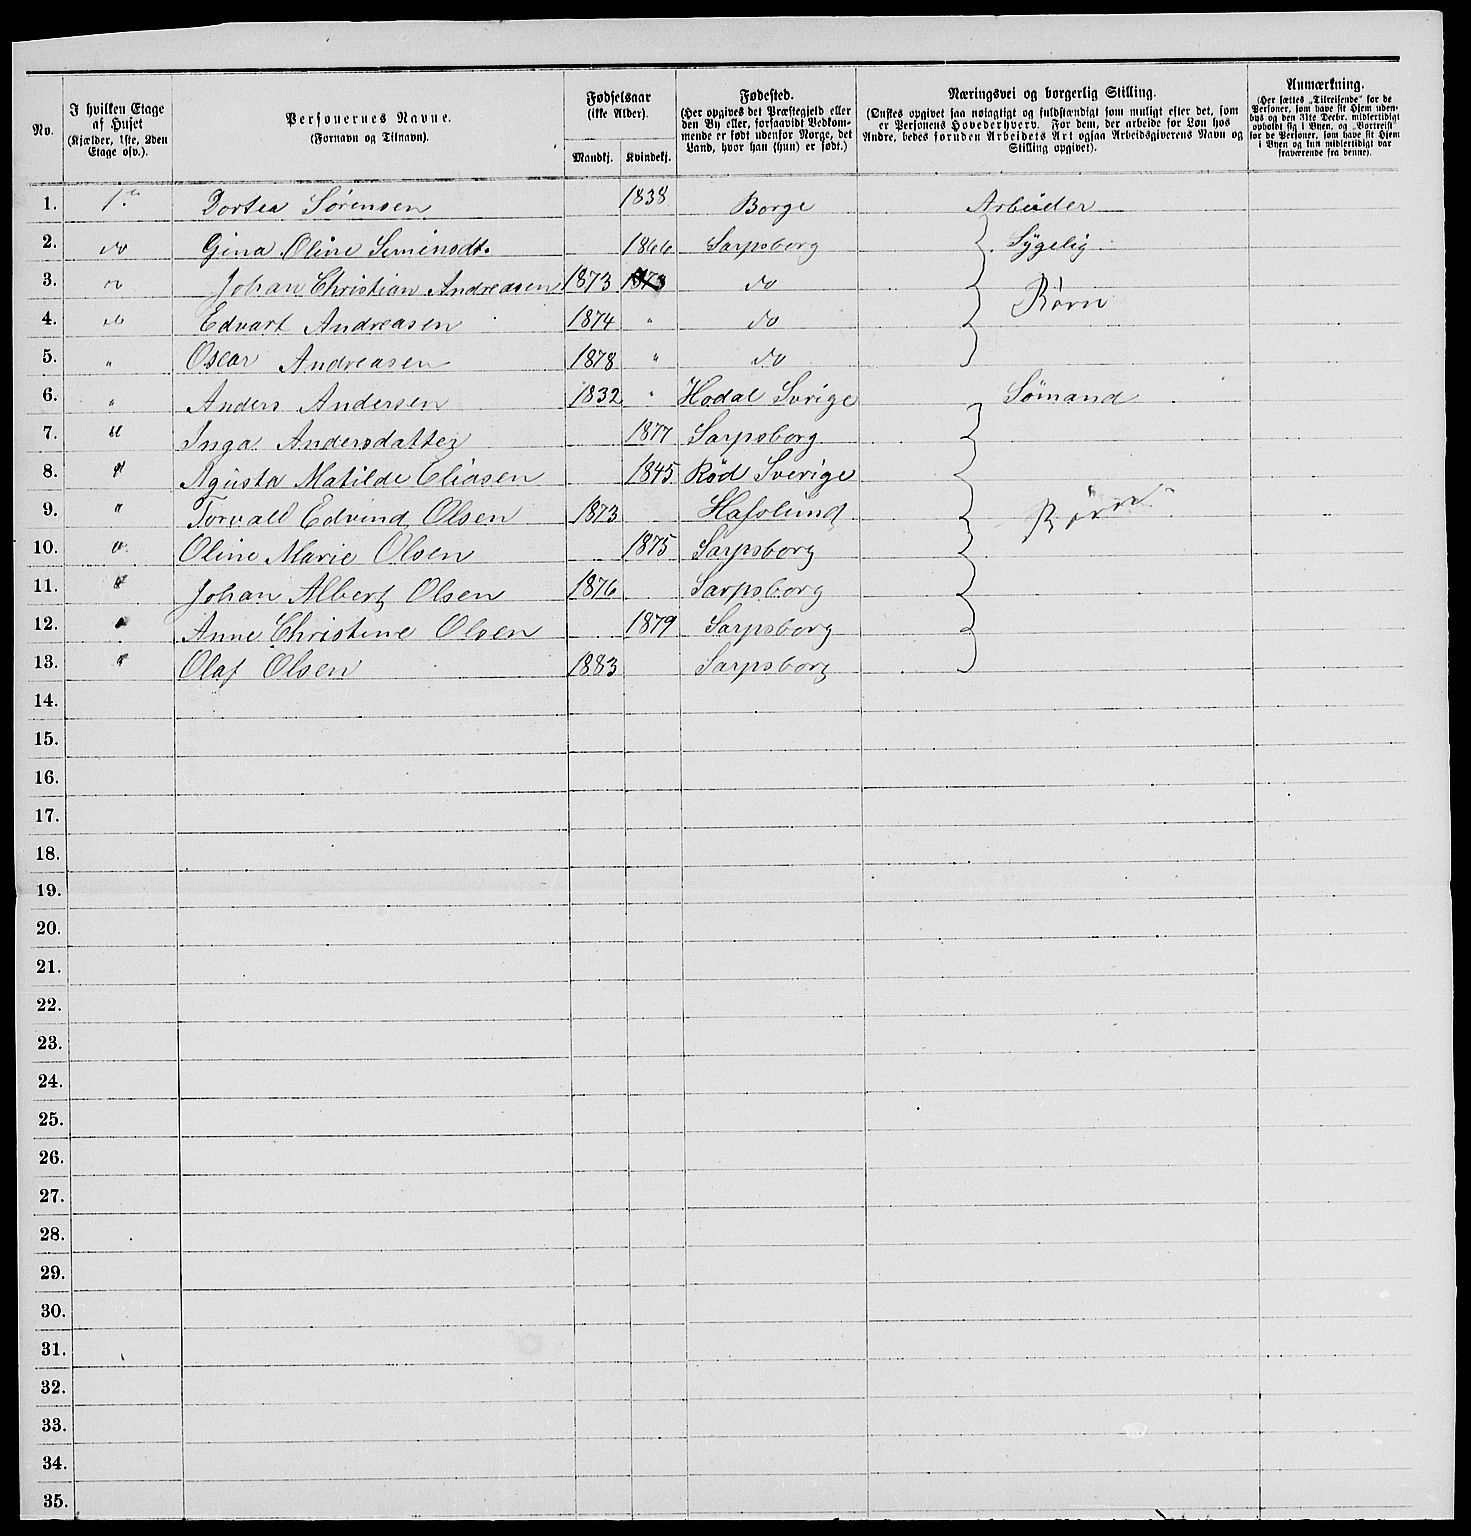 No.
I hvilken Etage af Huset (Kjælder, 1ste, 2den Etage osv.).
Personernes Navne. (Fornavn og Tilnavn).
Fødselsaar (ikke Alder). Mandkj. Kvindekj.
Fødested. (Her opgives det Præstegjeld eller den By eller, forsaavidt Vedkommende er født udenfor Norge, det Land, hvor han (hun) er født.)
Næringsvei og borgerlig Stilling. (Ønskes opgivet saa nøiagtigt og fuldstændigt som muligt efter det, som er Personens Hovederhverv. For dem, der arbeide for Løn hos Andre, bedes foruden Arbeidets Art ogsaa Arbeidsgiverens Navn og Stilling opgivet).
Anmærkning. (Her sættes „Tilreisende" for de Personer, som have sit Hjem udenbys og den 31te Decbr. midlertidigt opholdt sig i Byen, og „Bortreist" for de Personer, som have sit Hjem i Byen og kun midlertidigt var fraværende fra denne).
1. 1ste Dortea Sørensen 1838 Borge Arbeider
2. do Gina Oline 1866 Sarpsborg Sygelig
3. do Johan Christian Andreasen 1873 1873 do
4. do Edvart Andreasen 1874 " do Børn
5. " Oscar Andreasen 1878 " do
6. " Anders Andersen 1832 " Hodal Svrige Sømand
7. " Inga Andersdatter 1877 Sarpsborg
8. " Agusta Matilde Eliasen 1845 Rød Sverige
9. " Torvald Edvind Olsen 1873 Hafslund Børn
10. " Oline Marie Olsen 1875 Sarpsborg
11. " Johan Albert Olsen 1876 Sarpsborg
12. " Anne Christine Olsen 1879 Sarpsborg
13. " Olaf Olsen 1883 Sarpsborg
14.
15.
16.
17.
18.
19.
20.
21.
22.
23.
24.
25.
26.
27.
28.
29.
30.
31.
32.
33.
34.
35.